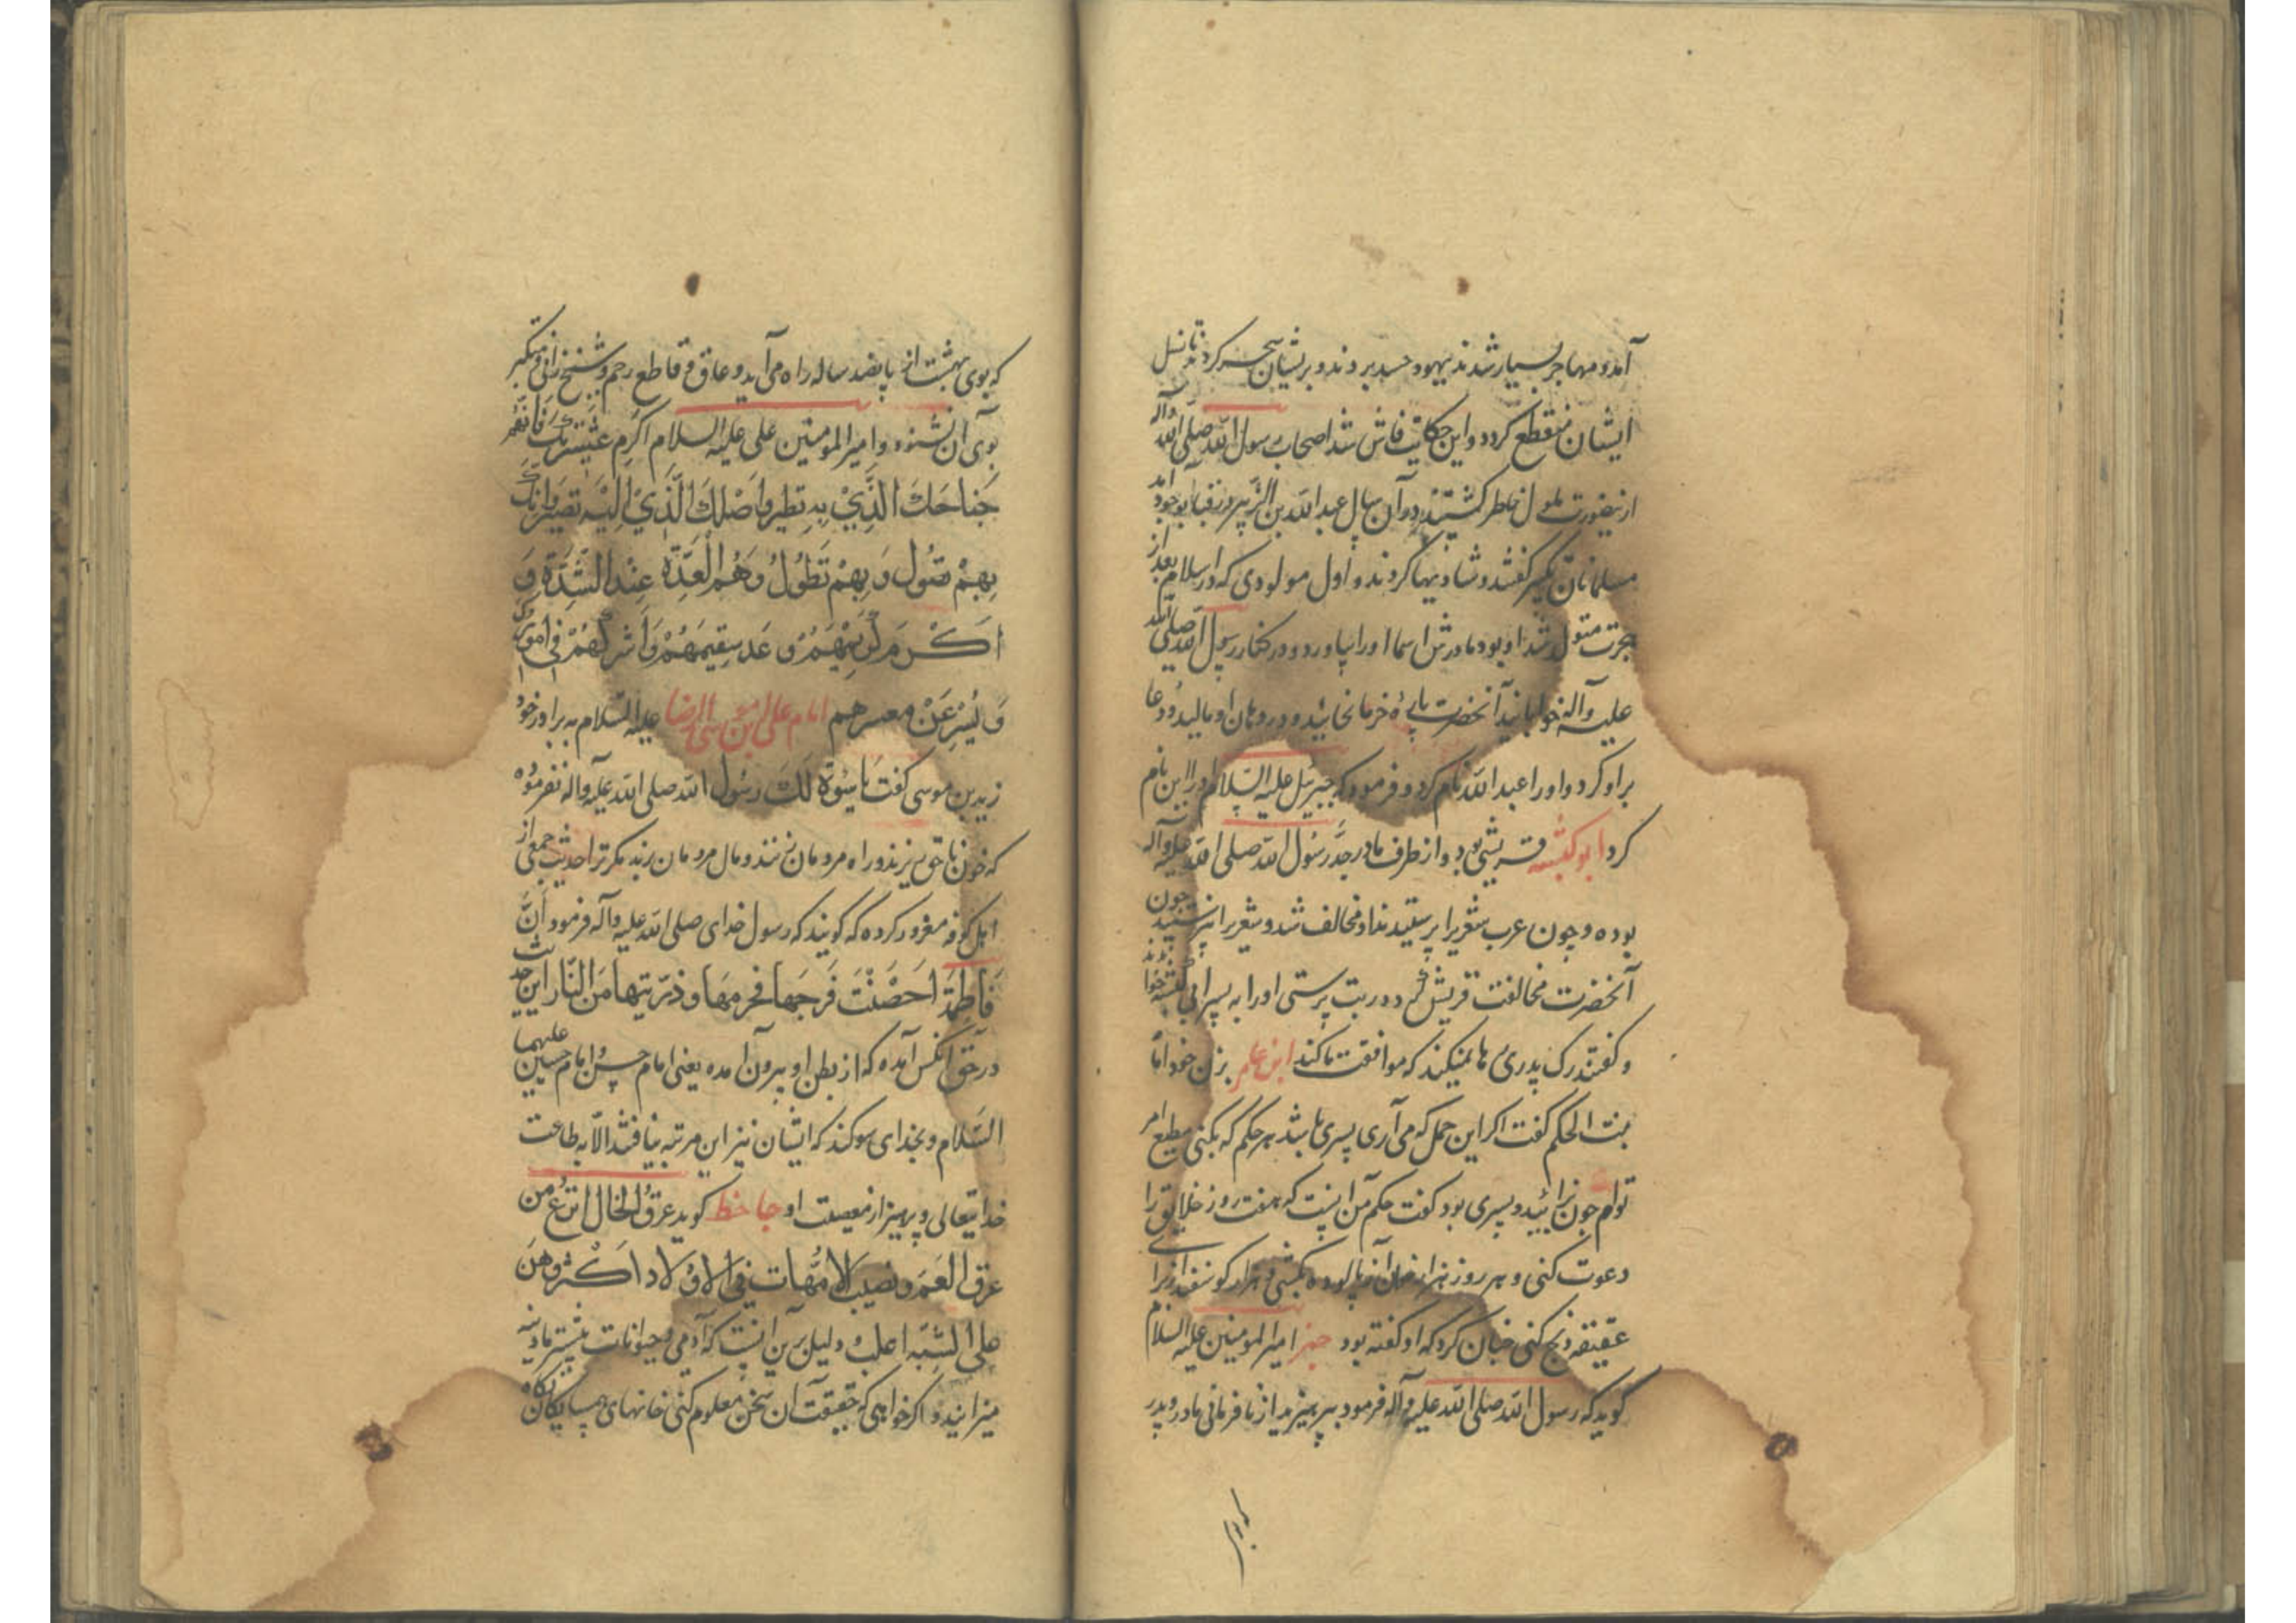 آمد و مهاجر بسیار شدند یهود حسد بردند و بریشان سحر کردند تا نسل
ایشان منقطع کردد و این حکایت فاش شد اصحاب رسول الله صلی الله وآله
ازینصورت ملول خاطر کشتند و در آن سال عبدالله بن الزبیر در قبا بوجود آمد
مسلمانان تکبیر کفتند و شادیها کردند و اول مولودی که در اسلام بعد از
هجرت متولد شد او بود مادرش اسما او را بیاورد و در کنار رسول الله صلی الله
علیه وآله خوابانید آنحضرت پارهٔ خرما بخایید و در دهان او مالید و دعا
بر او کرد و او را عبدالله نام کرد و فرمود که جبرئیل علیه السلام او را این نام
کرد ابو کبشه قریشی بود و از طرف مادر جد رسول الله صلی الله علیه وآله
بوده و چون عرب شعری را پرستیدند او مخالف شد و شعری را نپرستید چون
آنحضرت مخالفت قریش کرد در بت پرستی او را به پسر ابی کبشه خواندند
و کفتند رک پدری رها نمیکند که موافقت ما کند ابن عامر بزن خود اما
بنت الحکم کفت اکر این حمل که می آری پسری باشد هر حکم که بکنی مطیع امر
توام چون زایید و پسری بود کفت حکم من اینست که هفت روز خلایق را
دعوت کنی و هر روز هزار خوان از پالوده بکشی و هزار کوسفند از برای
عقیقه ذبح کنی چنان کرد که او کفته بود امیر المومنین علیه السلام
کوید که رسول الله صلی الله علیه وآله فرمود بپرهیزید از نافرمانی مادر و پدر
که بوی
که بوی بهشت از پانصد ساله راه می آید و عاق و قاطع رحم و شیخ زانی و متکبر
بوی آن نشنود و امیر المومنین علی علیه السلام اکرم عشیرتک فانهم
جناحک الذی به تطیر واصلک الذی الیه تصیر وانک
بهم تصول وبهم تطول وهم العدة عند الشدة و
اکرم کریمهم وعد سقیمهم واشرکهم فی امورک
ویسر عن معسرهم امام علی بن موسی الرضا علیه السلام به برادر خود
زید بن موسی کفت یا سوءة لک رسول الله صلی الله علیه وآله نفرموده
که خون ناحق بریزند و راه مردمان بزنند و مال مردمان برند مکر ترا حدیث جمعی از
اهل کوفه مغرور کرده که کویند که رسول خدای صلی الله علیه وآله فرمود أن
فاطمة احصنت فرجها فحرمها وذریتها من النار این حدیث
در حق آنکس آمده که از بطن او بیرون آمده یعنی امام حسن و امام حسین علیهما
السلام و بخدای سوکند که ایشان نیز این مرتبه نیافتند الا به طاعت
خدایتعالی و پرهیز از معصیت او جاحظ کوید عرق الخال انزع من
عرق العم ونصیب الامهات فی الاولاد اکثر وهن
علی الشبه اغلب و دلیل برین آنست که آدمی و حیوانات بیشتر مادینه
میزایند و اکر خواهی که حقیقت آن سخن معلوم کنی خانهای همسایکان نکاه